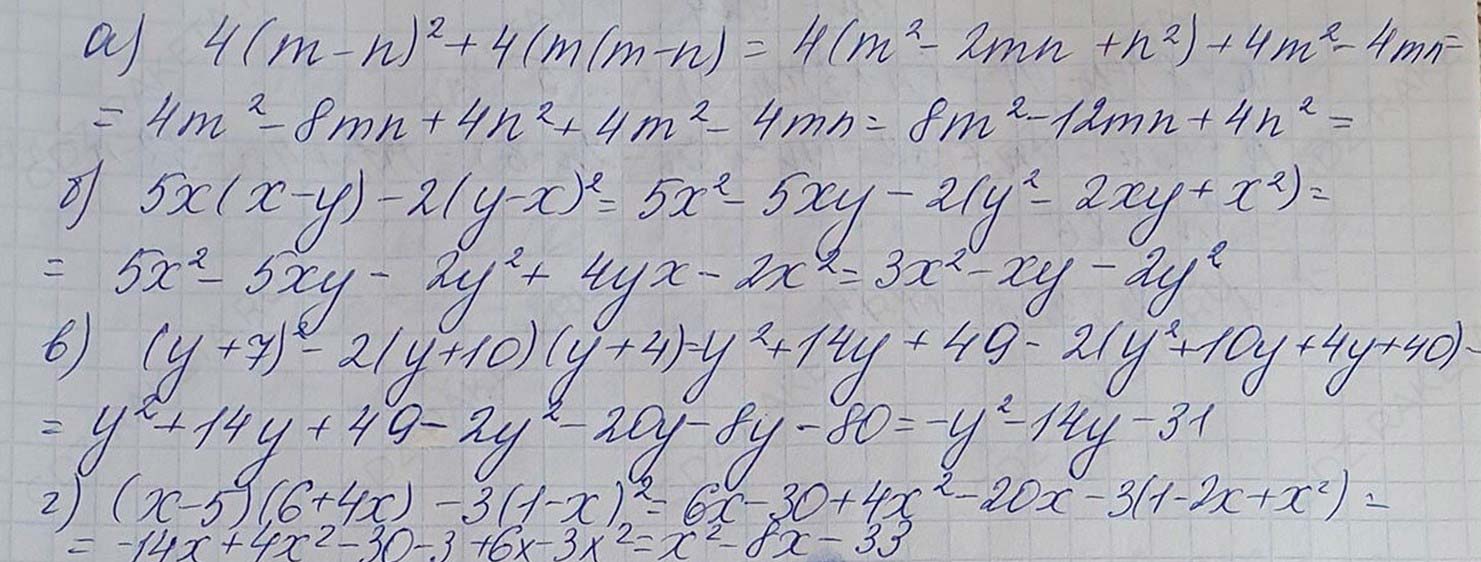 а) 4(m-n)²+4(m(m-n) = 4(m²-2mn+n²)+4m²-4mn=
= 4m²-8mn+4n²+4m²-4mn= 8m²-12mn+4n² =
б) 5x(x-y)-2(y-x)²= 5x²-5xy-2(y²-2xy+x²)=
= 5x²-5xy-2y²+4yx-2x²=3x²-xy-2y²
в) (y+7)²-2(y+10)(y+4)=y²+14y+49-2(y²+10y+4y+40)-
= y²+14y+49-2y²-20y-8y-80=-y²-14y-31
г) (x-5)(6+4x)-3(1-x)²= 6x-30+4x²-20x-3(1-2x+x²)=
= -14x+4x²-30-3+6x-3x²=x²-8x-33